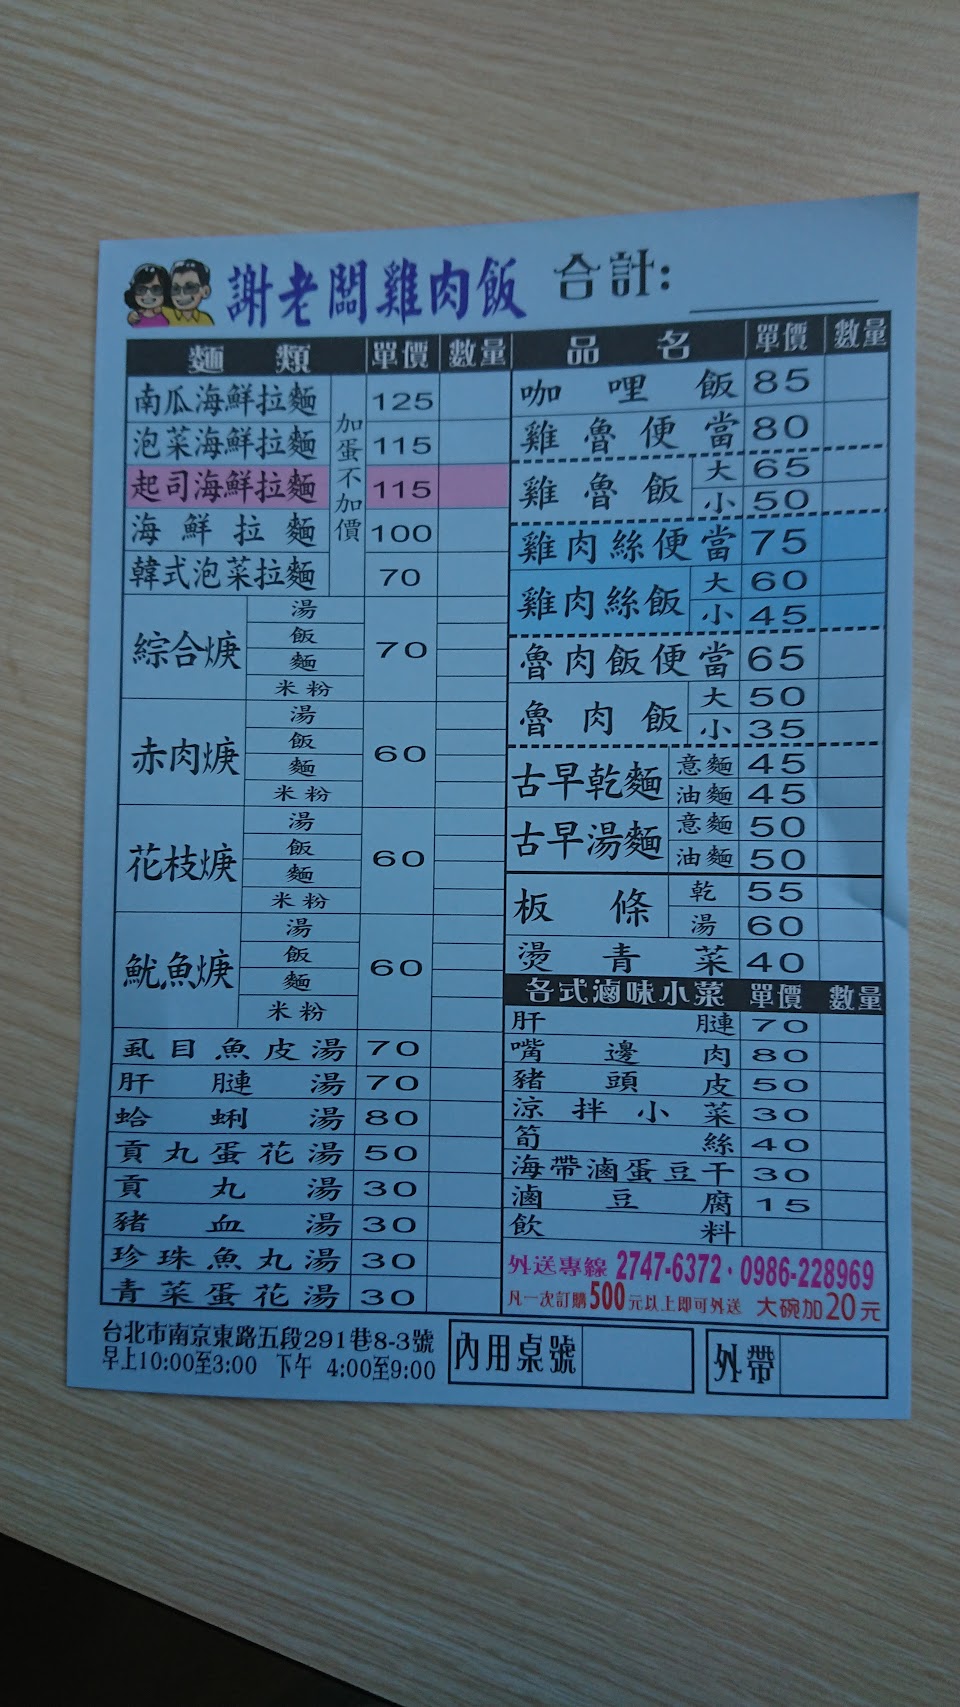 謝老闆雞肉飯 合計:
麵類 單價 數量
南瓜海鮮拉麵 125
泡菜海鮮拉麵 115
起司海鮮拉麵 115
海鮮拉麵 100
韓式泡菜拉麵 70
加蛋不加價
綜合焿 湯 飯 麵 米粉 70
赤肉焿 湯 飯 麵 米粉 60
花枝焿 湯 飯 麵 米粉 60
魷魚焿 湯 飯 麵 米粉 60
虱目魚皮湯 70
肝膁湯 70
蛤蜊湯 80
貢丸蛋花湯 50
貢丸湯 30
豬血湯 30
珍珠魚丸湯 30
青菜蛋花湯 30
品名 單價 數量
咖哩飯 85
雞魯便當 80
雞魯飯 大 65
小 50
雞肉絲便當 75
雞肉絲飯 大 60
小 45
魯肉飯便當 65
魯肉飯 大 50
小 35
古早乾麵 意麵 45
油麵 45
古早湯麵 意麵 50
油麵 50
板條 乾 55
湯 60
燙青菜 40
各式滷味小菜 單價 數量
肝膁 70
嘴邊肉 80
豬頭皮 50
涼拌小菜 30
筍絲 40
海帶滷蛋豆干 30
滷豆腐 15
飲料
外送專線 2747-6372·0986-228969
凡一次訂購500元以上即可外送 大碗加20元
台北市南京東路五段291巷8-3號
早上10:00至3:00 下午 4:00至9:00
內用桌號
外帶